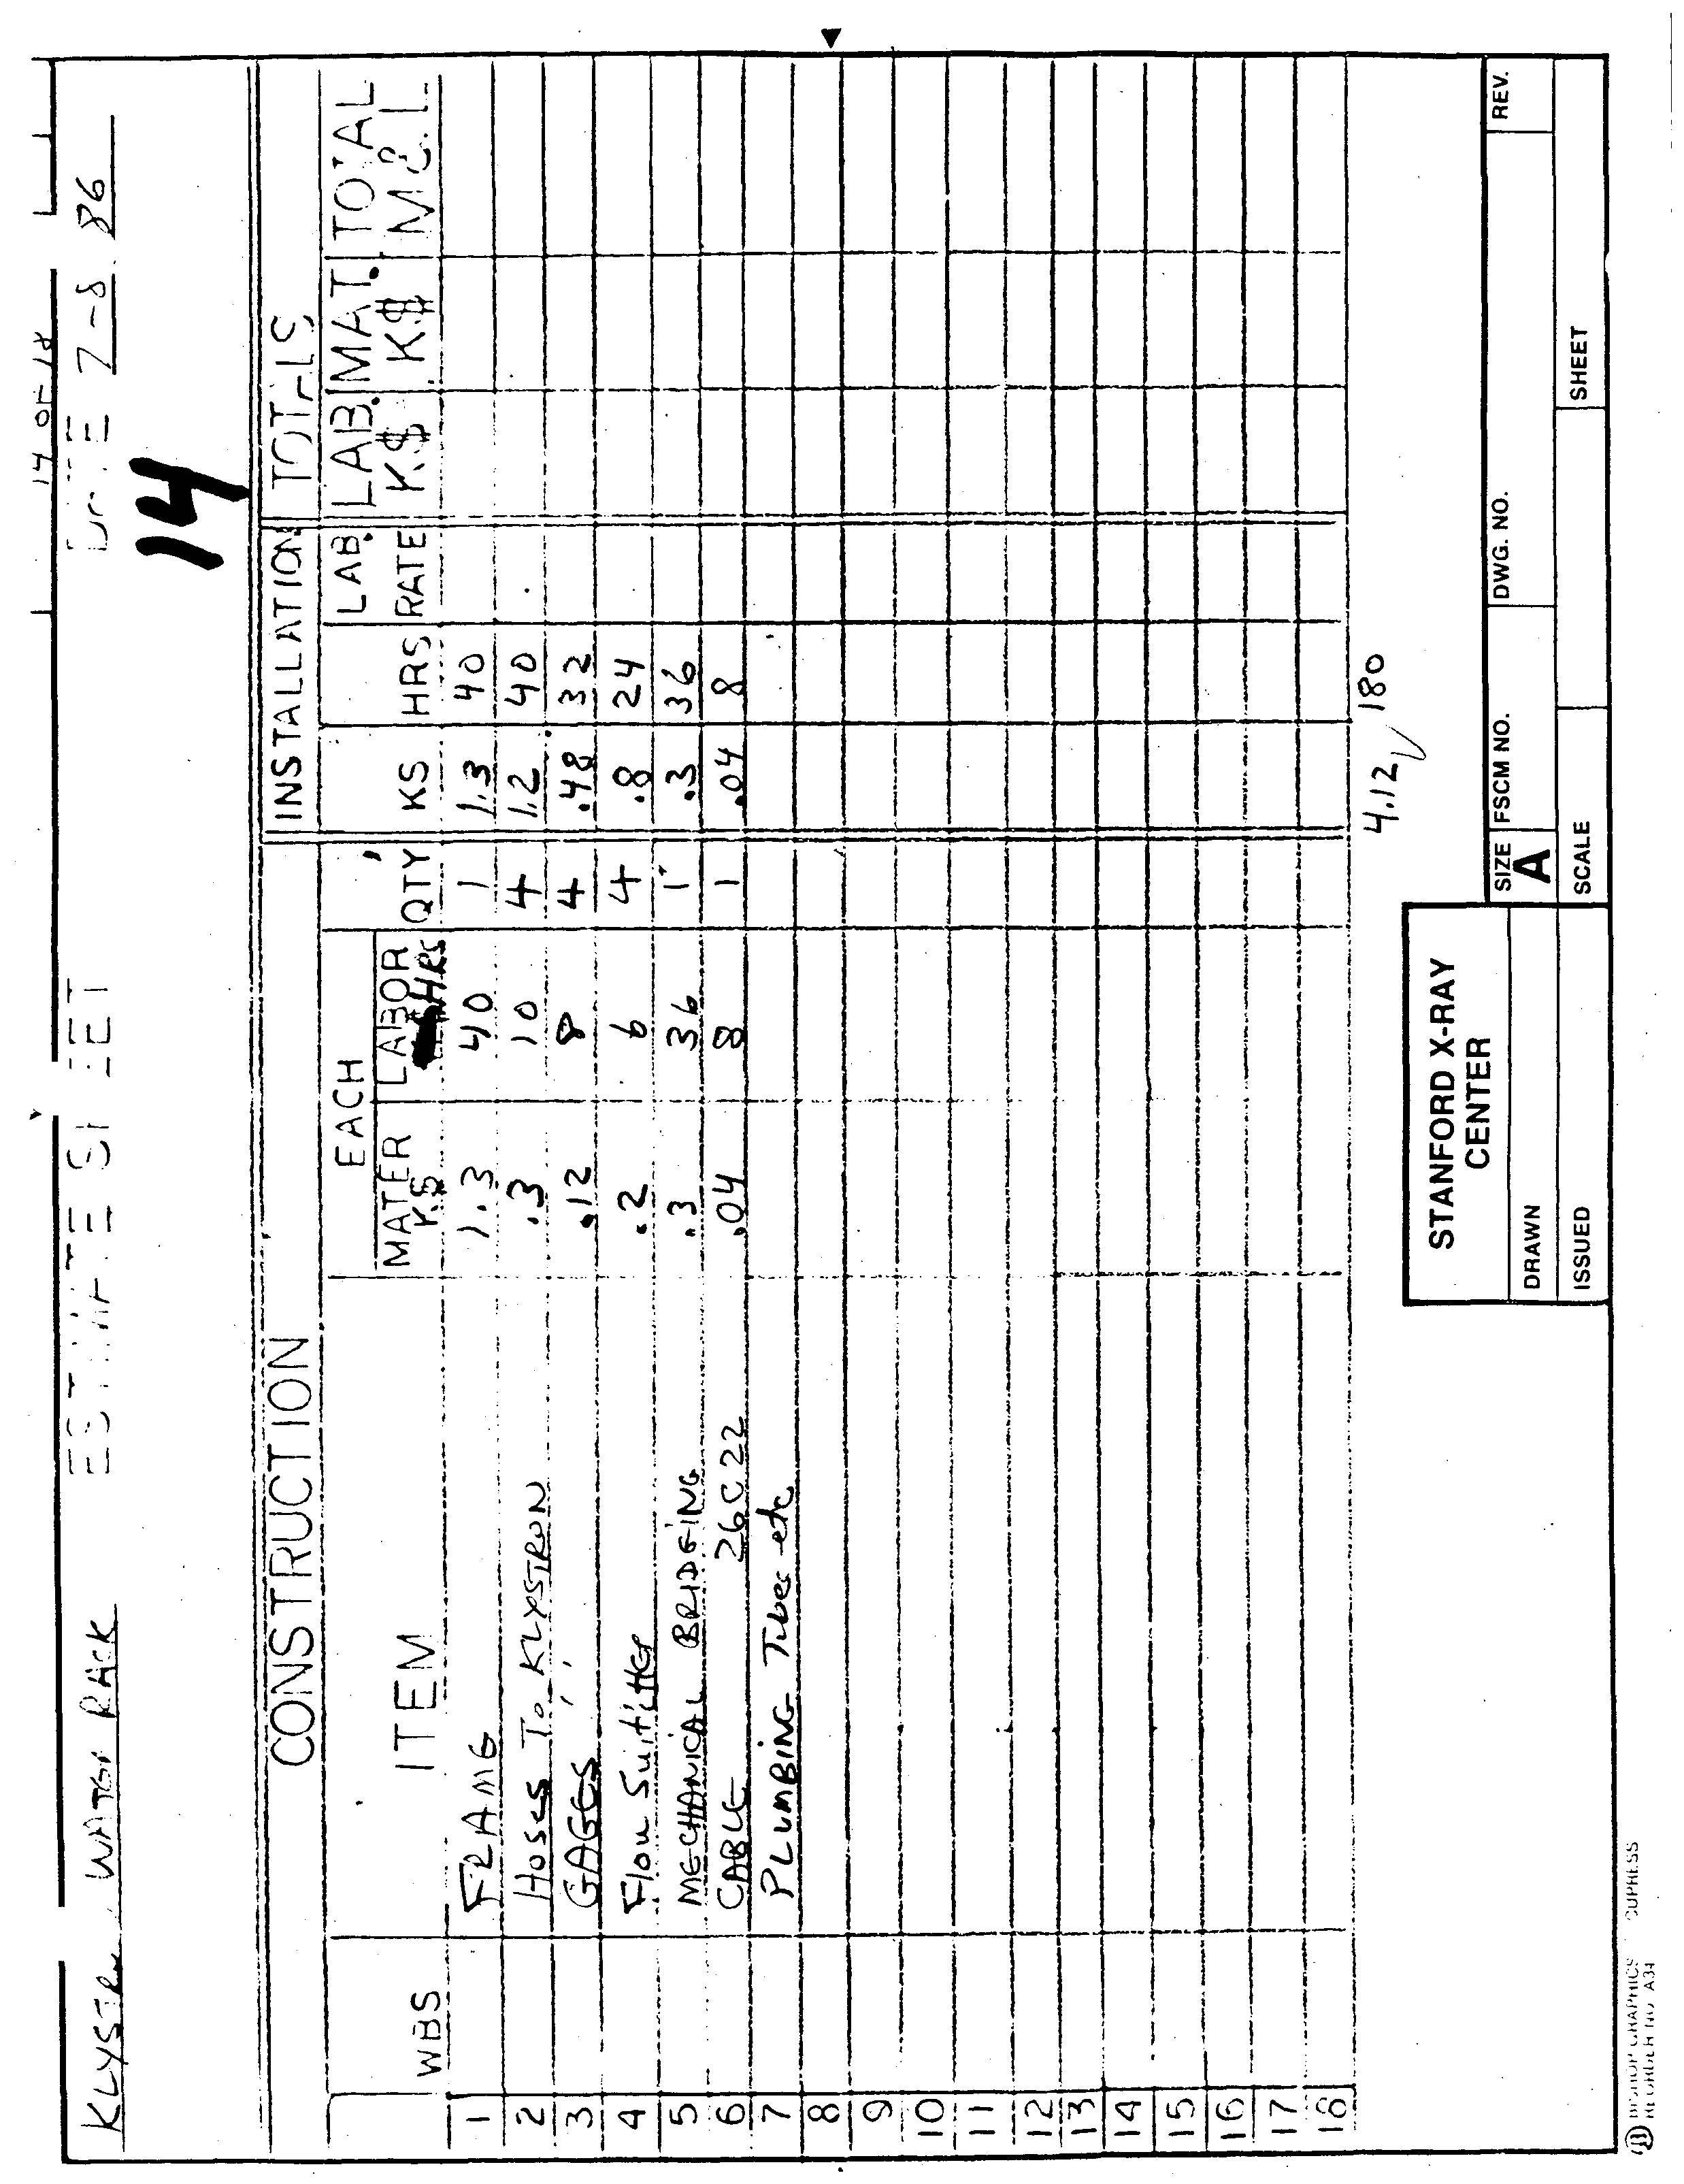 14 OF 18
KLYSTRN WATER RACK ESTIMATE SHEET DATE 7-8-86
14
CONSTRUCTION INSTALLATION TOTALS
EACH
WBS ITEM MATER K$ LABOR HRS QTY K$ HRS LAB. RATE LAB. K$ MAT. K$ TOTAL M&L
1 FRAME 1.3 40 1 1.3 40
2 HOSES TO KLYSTRON .3 10 4 1.2 40
3 GAGES " .12 8 4 .48 32
4 Flow Switches .2 6 4 .8 24
5 MECHANICAL BRIDGING .3 36 1 .3 36
6 CABLE 26C22 .04 8 1 .04 8
7 PLUMBING Tubes etc
8
9
10
11
12
13
14
15
16
17
18
4.12 ✓ 180
STANFORD X-RAY
CENTER
SIZE A FSCM NO. DWG. NO. REV.
DRAWN
ISSUED SCALE SHEET
BISHOP GRAPHICS
REORDER NO. A34